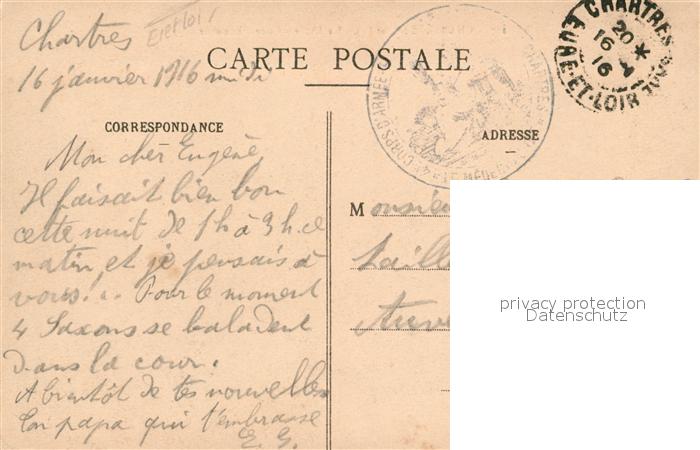 Chartres
Eure et Loir
16 janvier 1916 midi
CARTE POSTALE
CHARTRES
20 *
16 -1
16
EURE-ET-LOIR
CHARTRES
4e CORPS D'ARMÉE
CORRESPONDANCE
ADRESSE
Mon cher Eugène,
Il faisait bien bon
cette nuit de 1h à 3h ce
matin, et je pensais à
vous... Pour le moment
4 Saxons se baladent
dans la cour.
A bientôt de tes nouvelles
Ton papa qui t'embrasse
E. G.
Monsieu
Taill
Auve
privacy protection
Datenschutz